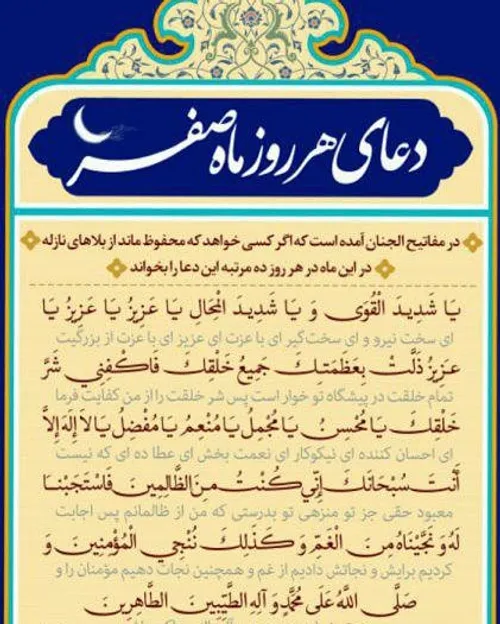 دعای هر روز ماه صفر
در مفاتیح الجنان آمده است که اگر کسی خواهد که محفوظ ماند از بلاهای نازله
در این ماه در هر روز ده مرتبه این دعا را بخواند
يَا شَدِيدَ الْقُوَى وَ يَا شَدِيدَ الْمِحَالِ يَا عَزِيزُ يَا عَزِيزُ يَا
ای سخت نیرو و ای سخت‌گیر ای با عزت ای عزیز ای با عزت از بزرگیت
عَزِيزُ ذَلَّتْ بِعَظَمَتِكَ جَمِيعُ خَلْقِكَ فَاكْفِنِي شَرَّ
تمام خلقت در پیشگاه تو خوار است پس شر خلقت را از من کفایت فرما
خَلْقِكَ يَا مُحْسِنُ يَا مُجْمِلُ يَا مُنْعِمُ يَا مُفْضِلُ يَا لَا إِلَهَ إِلَّا
ای احسان کننده ای نیکوکار ای نعمت بخش ای عطا ده ای که نیست
أَنْتَ سُبْحَانَكَ إِنِّي كُنْتُ مِنَ الظَّالِمِينَ فَاسْتَجَبْنَا
معبود حقی جز تو منزهی تو بدرستی که من از ظالمانم پس اجابت
لَهُ وَ نَجَّيْنَاهُ مِنَ الْغَمِّ وَ كَذَلِكَ نُنْجِي الْمُؤْمِنِينَ وَ
کردیم برایش و نجاتش دادیم از غم و همچنین نجات دهیم مؤمنان را و
صَلَّى اللَّهُ عَلَى مُحَمَّدٍ وَ آلِهِ الطَّيِّبِينَ الطَّاهِرِينَ